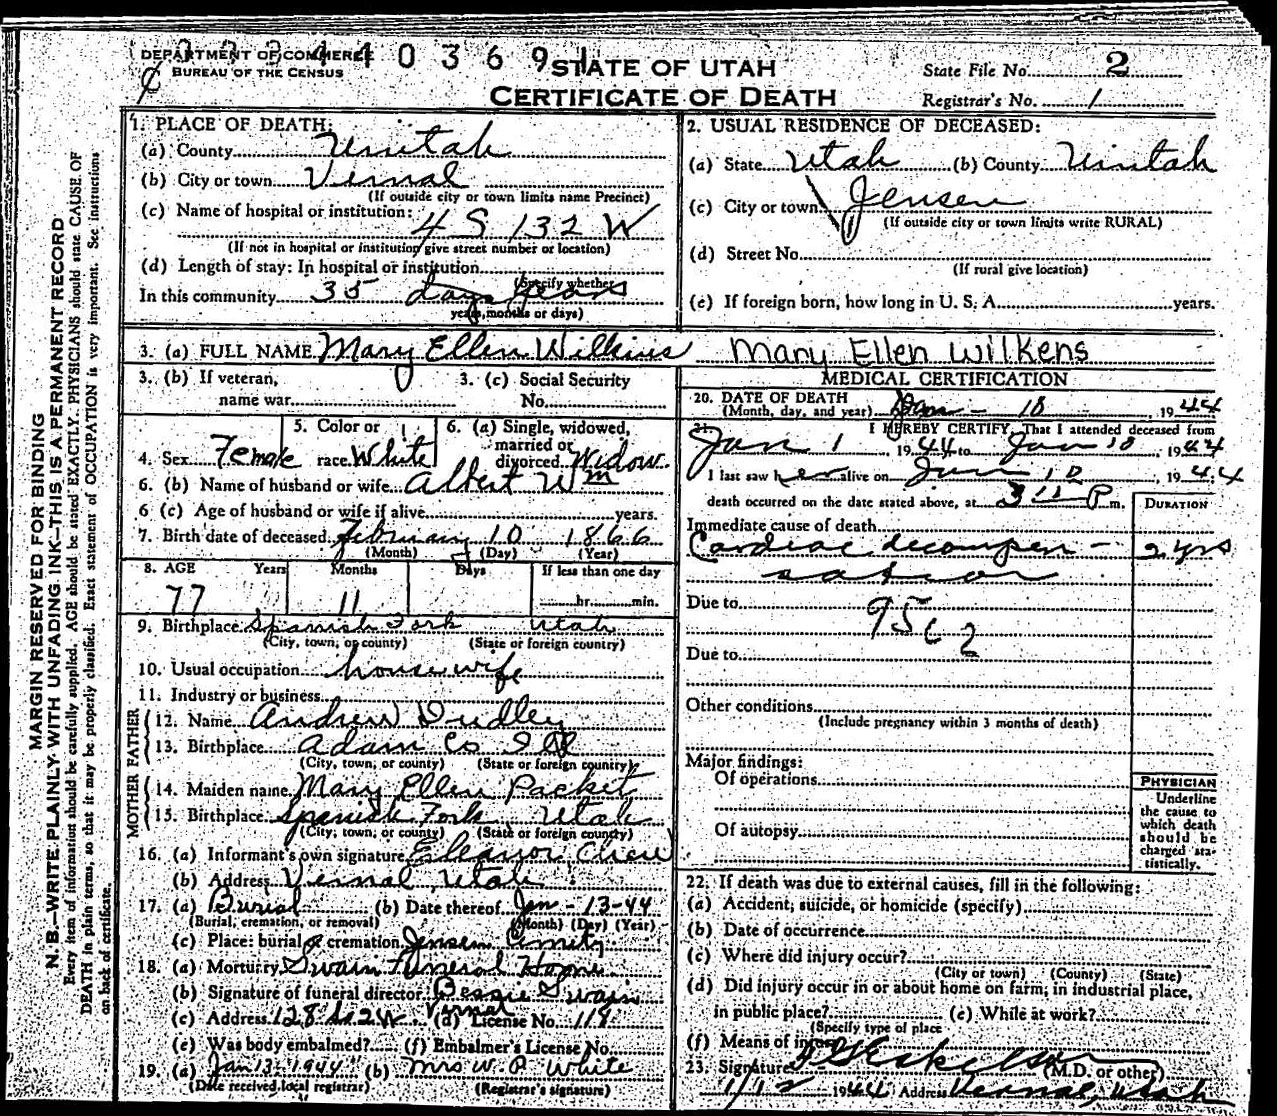 DEPARTMENT OF COMMERCE
BUREAU OF THE CENSUS
40369
STATE OF UTAH
CERTIFICATE OF DEATH
State File No. 2
Registrar's No. 1
MARGIN RESERVED FOR BINDING
N. B.—WRITE PLAINLY WITH UNFADING INK—THIS IS A PERMANENT RECORD
Every item of information should be carefully supplied. AGE should be stated EXACTLY. PHYSICIANS should state CAUSE OF
DEATH in plain terms, so that it may be properly classified. Exact statement of OCCUPATION is very important. See instructions
on back of certificate.
1. PLACE OF DEATH:
(a) County Uintah
(b) City or town Vernal
(If outside city or town limits name Precinct)
(c) Name of hospital or institution:
4 S 132 W
(If not in hospital or institution give street number or location)
(d) Length of stay: In hospital or institution
(Specify whether
In this community 35 days years
years, months or days)
2. USUAL RESIDENCE OF DECEASED:
(a) State Utah (b) County Uintah
(c) City or town Jensen
(If outside city or town limits write RURAL)
(d) Street No.
(If rural give location)
(e) If foreign born, how long in U. S. A. years.
3. (a) FULL NAME Mary Ellen Wilkins Mary Ellen Wilkens
3. (b) If veteran,
name war
3. (c) Social Security
No.
4. Sex Female
5. Color or
race White
6. (a) Single, widowed,
married or
divorced Widow.
6. (b) Name of husband or wife Albert Wm
6 (c) Age of husband or wife if alive years.
7. Birth date of deceased February 10 1866
(Month) (Day) (Year)
8. AGE Years Months Days If less than one day
77 11 hr. min.
9. Birthplace Spanish Fork Utah
(City, town, or county) (State or foreign country)
10. Usual occupation housewife
11. Industry or business
FATHER
12. Name Andrew Dudley
13. Birthplace Adam Co Ill
(City, town, or county) (State or foreign country)
MOTHER
14. Maiden name Mary Ellen Packet
15. Birthplace Spanish Fork Utah
(City, town, or county) (State or foreign country)
16. (a) Informant's own signature Eleanor Chew
(b) Address Vernal Utah
17. (a) Burial (b) Date thereof Jan - 13-44
(Burial, cremation, or removal) (Month) (Day) (Year)
(c) Place: burial or cremation Jensen
18. (a) Mortuary Swain Funeral Home
(b) Signature of funeral director Bessie Swain
(c) Address 128 So 2 W Vernal (d) License No. 118
(e) Was body embalmed? (f) Embalmer's License No.
19. (a) Jan 13-1944 (b) Mrs W. P. White
(Date received local registrar) (Registrar's signature)
MEDICAL CERTIFICATION
20. DATE OF DEATH
(Month, day, and year) Jan - 10, 1944
21. I HEREBY CERTIFY, That I attended deceased from
Jan 1 1944 to Jan 10, 1944
I last saw her alive on Jan 10, 1944
death occurred on the date stated above, at P m.
DURATION
Immediate cause of death
Cardiac decompen- 2 yrs
sation
Due to
95c2
Due to
Other conditions
(Include pregnancy within 3 months of death)
Major findings:
Of operations
Of autopsy
PHYSICIAN
Underline
the cause to
which death
should be
charged sta-
tistically.
22. If death was due to external causes, fill in the following:
(a) Accident, suicide, or homicide (specify)
(b) Date of occurrence
(c) Where did injury occur?
(City or town) (County) (State)
(d) Did injury occur in or about home on farm, in industrial place,
in public place? (e) While at work?
(Specify type of place
(f) Means of injury
23. Signature (M.D. or other)
1/12 1944 Address Vernal, Utah